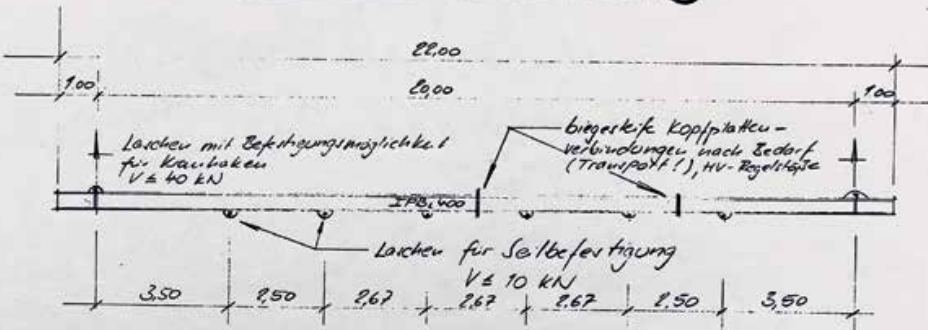 22,00
1.00
20,00
1.00
Laschen mit Befestigungsmöglichkeit
für Kranhaken
V ≤ 40 kN
biegesteife Kopfplatten-
verbindungen nach Bedarf
(Transport!), HV-Regelstöße
400
Laschen für Seilbefestigung
V ≤ 10 kN
3,50
2,50
2,67
2,67
2,67
2,50
3,50